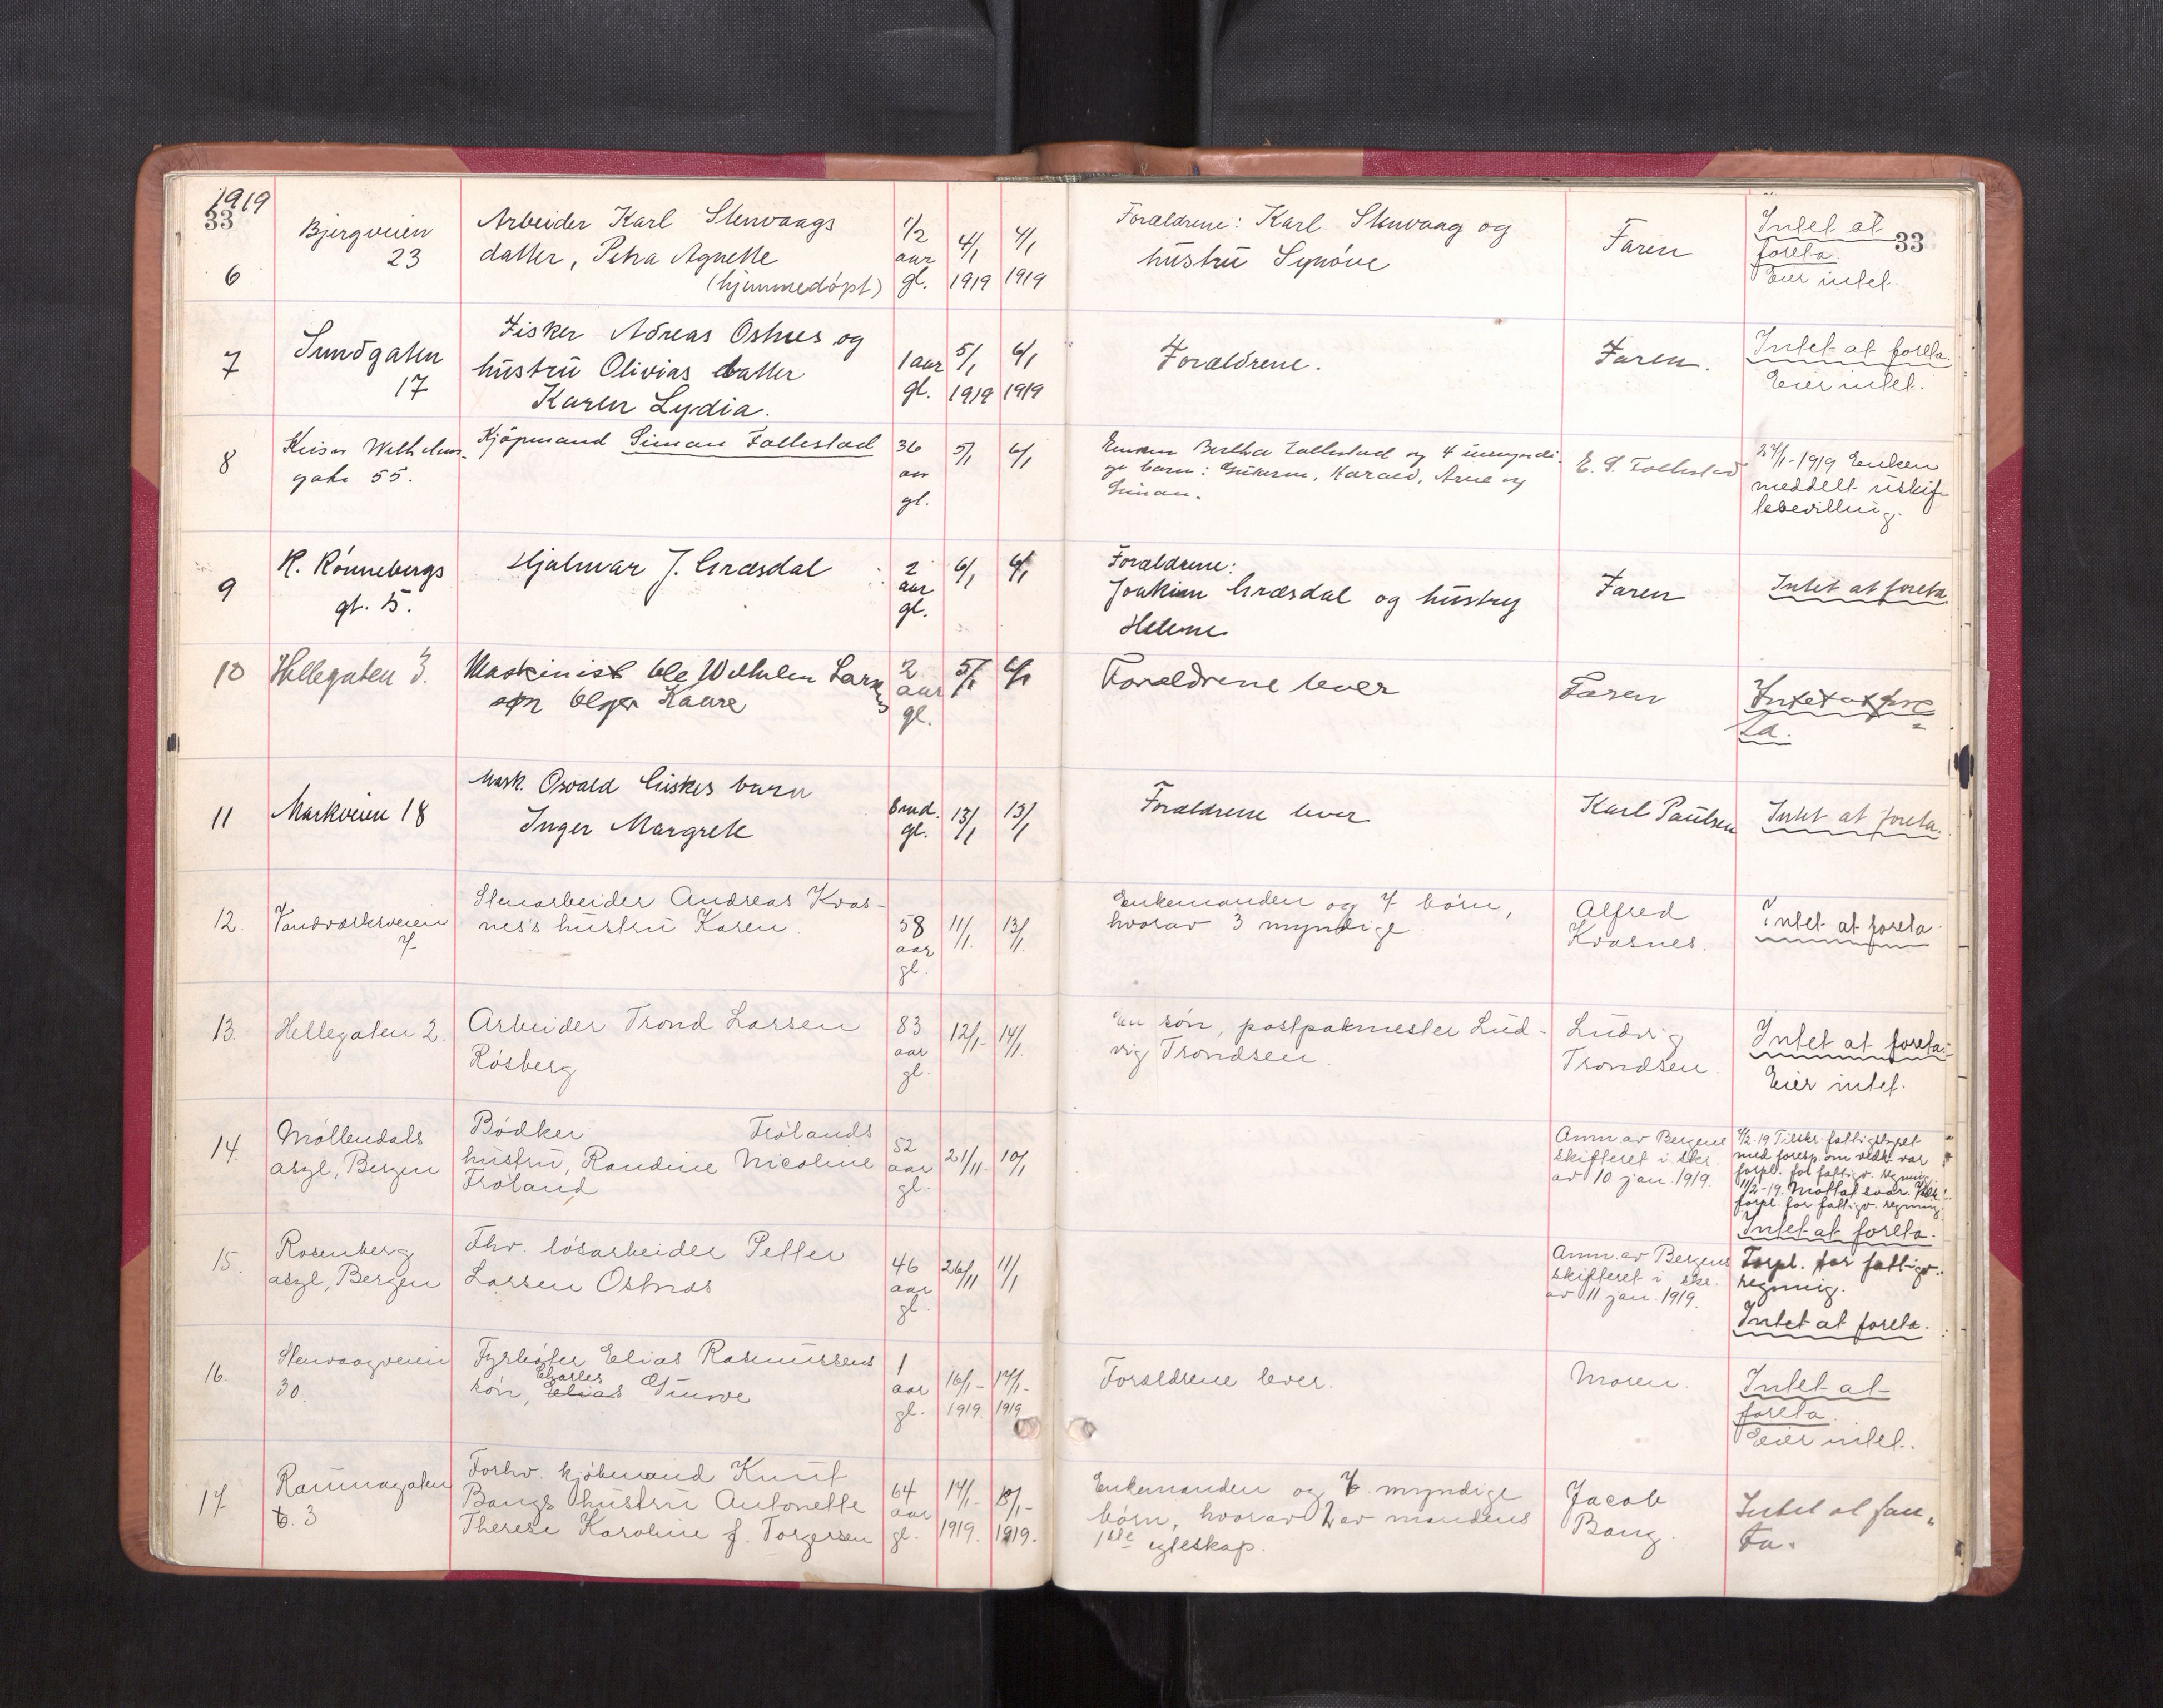 1919
33
33
6
Bjergveien
23
Arbeider Karl Stenvaags
datter, Petra Agnette
(hjemmedöpt)
1/2
aar
gl.
4/1
1919
4/1
1919
Forældrene: Karl Stenvaag og
hustru Synöve
Faren
Intet at
foreta.
Eier intet.
7
Sundgaten
17
Fisker Adreas Oshus og
hustru Olivias datter
Karen Lydia.
1 aar
gl.
5/1
1919
6/1
1919
Forældrene.
Faren.
Intet at foreta.
Eier intet.
8
Keiser Wilhelms-
gate 55.
Kjöpmand Simon Follestad
36
aar
gl.
5/1
6/1
Enken Bertha Follestad og 4 umyndi-
ge barn: Guttorm, Harald, Arne og
Simon.
E. S. Follestad
27/1-1919 Enken
meddelt uskif-
tebevilling.
9
R. Rönnebergs
gt. 15.
Hjalmar J. Græsdal
2
aar
gl.
6/1
6/1
Forældrene:
Joakim Græsdal og hustru
Helene
Faren
Intet at foreta
10
Hellegaten 3.
Maskinist Ole Wilhelm Larsens
søn Olger Kaare
2
aar
gl.
5/1
6/1
Forældrene lever
Faren
Intet at fore-
ta.
11
Markveien 18
Mask. Osvald Giskes barn
Inger Margrete
8 md.
gl.
13/1
13/1
Forældrene lever
Karl Paulsen
Intet at foreta.
12.
Vandværksveien
7
Stenarbeider Andreas Kvas-
nes's hustru Karen
58
aar
gl.
11/1.
13/1.
Enkemanden og 7 börn,
hvorav 3 myndige.
Alfred
Kvasnes.
Intet at foreta.
13.
Hellegaten 2.
Arbeider Trond Larsen
Rösberg
83
aar
gl.
12/1-
14/1.
En sön, postpakmester Lud-
vig Trondsen.
Ludvig
Trondsen.
Intet at foreta.
Eier intet.
14.
Möllendals
asyl, Bergen
Bödker Frölands
hustru, Randine Nicoline
Fröland
52
aar
gl.
21/11.
10/1
Anm. av Bergens
skifteret i skr.
av 10 jan. 1919.
4/2-19 Tilskr. fattigstyret
med foresp. om vedk. var
forpl. for fattigv. regning.
11/2-19. Mottat svar.
forpl. for fattigv. regning.
Intet at foreta.
15.
Rosenberg
asyl, Bergen
Fhv. lösarbeider Petter
Larsen Ostnæs
46
aar
gl.
26/11
11/1
Anm. av Bergens
skifteret i skr.
av 11 jan. 1919.
Forpl. for fattigv.
regning.
Intet at foreta.
16.
Stenvaagveien
30.
Fyrböter Elias Rasmussens
sön, Elias Charles Gunve
1
aar
gl.
16/1-
1919.
17/1-
1919
Forældrene lever.
Moren.
Intet at
foreta.
Eier intet.
17
Raumagaten
6. 3
Forhv. kjöbmand Knut
Bangs hustru Antonette
Therese Karoline f. Torgersen
64
aar
gl.
14/1-
1919.
18/1-
1919.
Enkemanden og 7 myndige
börn, hvorav 2 av mandens
1ste egteskap.
Jacob
Bang.
Intet at fore-
ta.